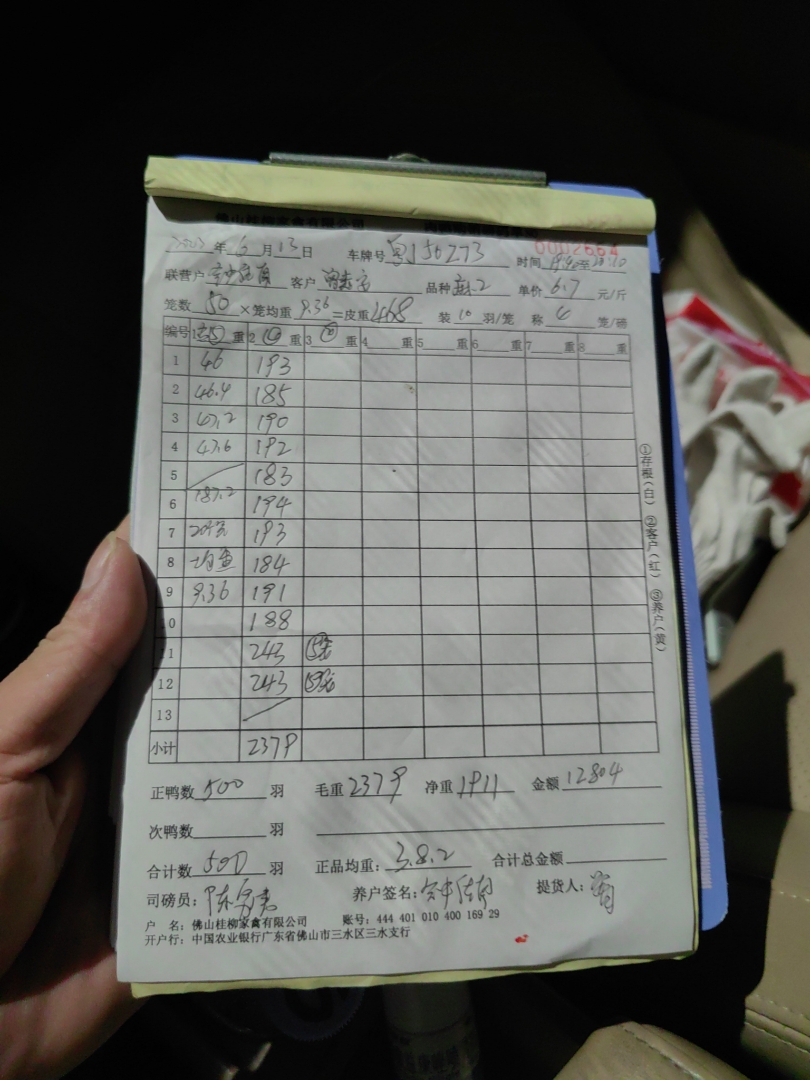 佛山桂柳家禽有限公司
0002664
年 6 月 13 日 车牌号 粤J50273 时间 至
联营户 客户 品种 麻2 单价 6.7 元/斤
笼数 50 ×笼均重 9.36 =皮重 468 装 10 羽/笼 称 4 笼/磅
编号 1 重 2 重 3 重 4 重 5 重 6 重 7 重 8 重
1 46 193
2 46.4 185
3 47.2 190
4 47.6 192
5 183
6 187.2 194
7 20笼 193
8 均重 184
9 9.36 191
10 188
11 243 5笼
12 243 5笼
13
小计 2379
①存根(白) ②客户(红) ③养户(黄)
正鸭数 500 羽 毛重 2379 净重 1911 金额 12804
次鸭数 羽
合计数 500 羽 正品均重: 3.8.2 合计总金额
司磅员: 养户签名: 提货人:
户 名: 佛山桂柳家禽有限公司 账号: 444 401 010 400 169 29
开户行: 中国农业银行广东省佛山市三水区三水支行